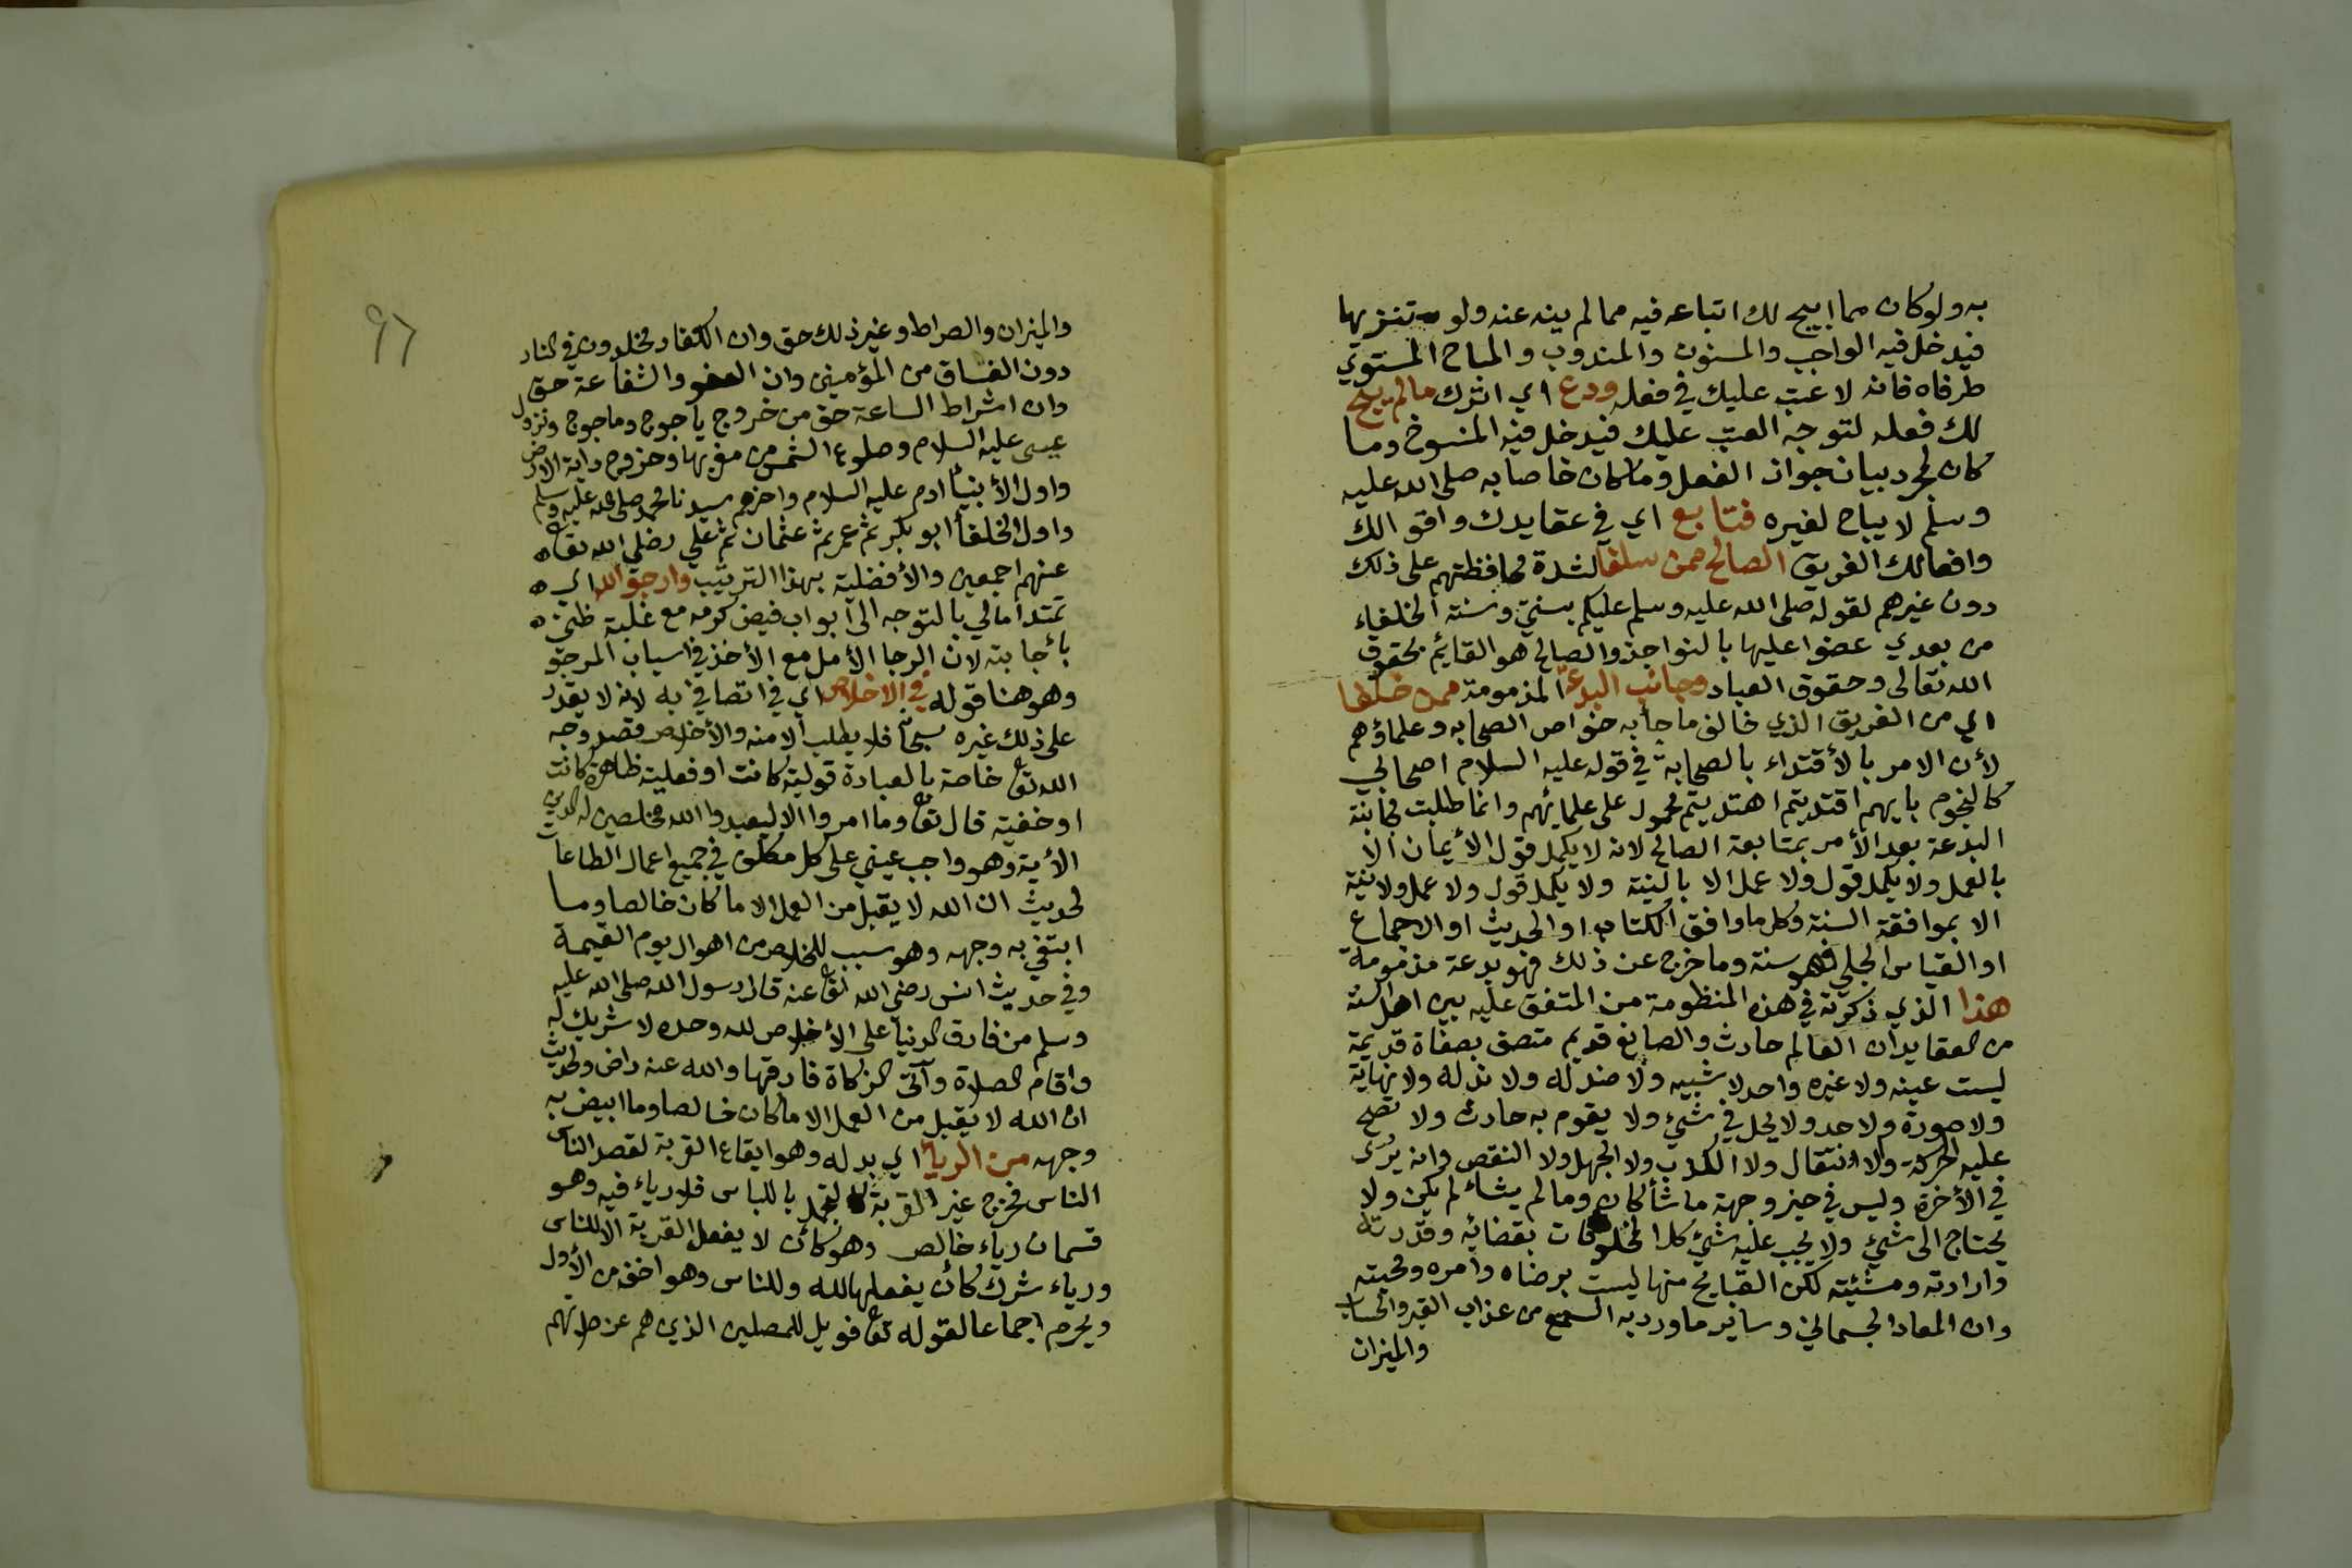 به ولو كان مما ابيح لك اتباعه فيه مما لم ينه عنه ولو تنزيها
فيدخل فيه الواجب والمسنون والمندوب والمباح المستوي
طرفاه فانه لا عتب عليك في فعله ودع اي اترك مالم يبح
لك فعله لتوجه العتب عليك فيدخل فيه المنسوخ وما
كان لمجرد بيان جواز الفعل وما كان خاصا به صلى الله عليه
وسلم لا يباح لغيره فتابع اي في عقايدك واقوالك
وافعالك الفريق الصالح ممن سلفا لشدة محافظتهم على ذلك
دون غيرهم لقوله صلى الله عليه وسلم عليكم بسنتي وسنة الخلفاء
من بعدي عضوا عليها بالنواجذ والصالح هو القائم بحقوق
الله تعالى وحقوق العباد وجانب البدعة المذمومة ممن خلفا
اي من الفريق الذي خالف ما جأ به خواص الصحابه وعلماؤهم
لأن الامر بالأقتداء بالصحابة في قوله عليه السلام اصحابي
كالنجوم بايهم اقتديتم اهتديتم محمول على علمائهم وانما طلبت مجانبة
البدعة بعد الأمر بمتابعة الصالح لانه لا يكمل قول الأيمان الا
بالعمل ولا يكمل قول ولا عمل الا بالنية ولا يكمل قول ولا عمل ولا نية
الا بموافقة السنة وكل ما وافق الكتاب او الحديث او الاجماع
او القياس الجلي فهو سنة وما خرج عن ذلك فهو بدعة مذمومة
هذا الذي ذكرته في هذه المنظومة من المتفق عليه بين اهل السنة
من العقايد ان العالم حادث والصانع قديم متصف بصفاة قديمة
ليست عينه ولا غيره واحد لا شبيه ولا ضد له ولا ند له ولا نهاية
ولا صورة ولا حد ولا يحل في شيئ ولا يقوم به حادث ولا تصح
عليه الحركة ولا الانتقال ولا الكذب ولا الجهل ولا النقص وانه يرى
في الأخرة وليس في حيز وجهة ما شأ كان وما لم يشاء لم يكن ولا
يحتاج الى شيئ ولا يجب عليه شيئ كل المخلوقات بقضائه وقدرته
وارادته ومشيئته لكن القبايح منها ليست برضاه وامره ومحبته
وان المعاد الجسماني وساير ما ورد به السمع من عذاب القبر والحساب
والميزان
والميزان والصراط وغير ذلك حق وان الكفار مخلدون في النار
دون الفساق من المؤمنين وان العفو والشفاعة حق
وان اشراط الساعة حق من خروج ياجوج وماجوج ونزول
عيسى عليه السلام وطلوع الشمس من مغربها وخروج دابة الارض
واول الأنبيأ ادم عليه السلام واخرهم سيدنا محمد صلى الله عليه وسلم
واول الخلفأ ابو بكر ثم عمر ثم عثمان ثم علي رضي الله تعا
عنهم اجمعين والأفضلية بهذا الترتيب وارجو الله اي
تمتد امالي بالتوجه الى ابواب فيض كرمه مع غلبة ظني
بأجابته لان الرجا الأمل مع الأخذ في اسباب المرجو
وهو هنا قوله في الاخلاص اي في اتصافي به لانه لا يقدر
على ذلك غيره سبحانه فلا يطلب الا منه والأخلاص قصد وجه
الله تعا خاصة بالعبادة قولية كانت او فعلية ظاهرة كانت
او خفية قال تعا وما امروا الا ليعبدوا الله مخلصين له الدين
الأية وهو واجب عيني على كل مكلف في جميع اعمال الطاعات
لحديث ان الله لا يقبل من العمل الا ما كان خالصا وما
ابتغي به وجهه وهو سبب للخلاص من اهوال يوم القيمة
وفي حديث انس رضي الله تعا عنه قال رسول الله صلى الله عليه
وسلم من فارق الدنيا على الأخلاص لله وحده لا شريك له
واقام الصلاة وآتى الزكاة فارقها والله عنه راض ولحديث
ان الله لا يقبل من العمل الا ما كان خالصا وما ابيض به
وجهه من الريا اي بدله وهو ايقاع القربة لقصد الناس
الناس فخرج غير القربة كالتجمل باللباس فلا رياء فيه وهو
قسمان رياء خالص وهو كأن لا يفعل القربة الا للناس
ورياء شرك كأن يفعلها لله وللناس وهو اخف من الأول
ويحرم اجماعا لقوله تعا فويل للمصلين الذين هم عن صلاتهم